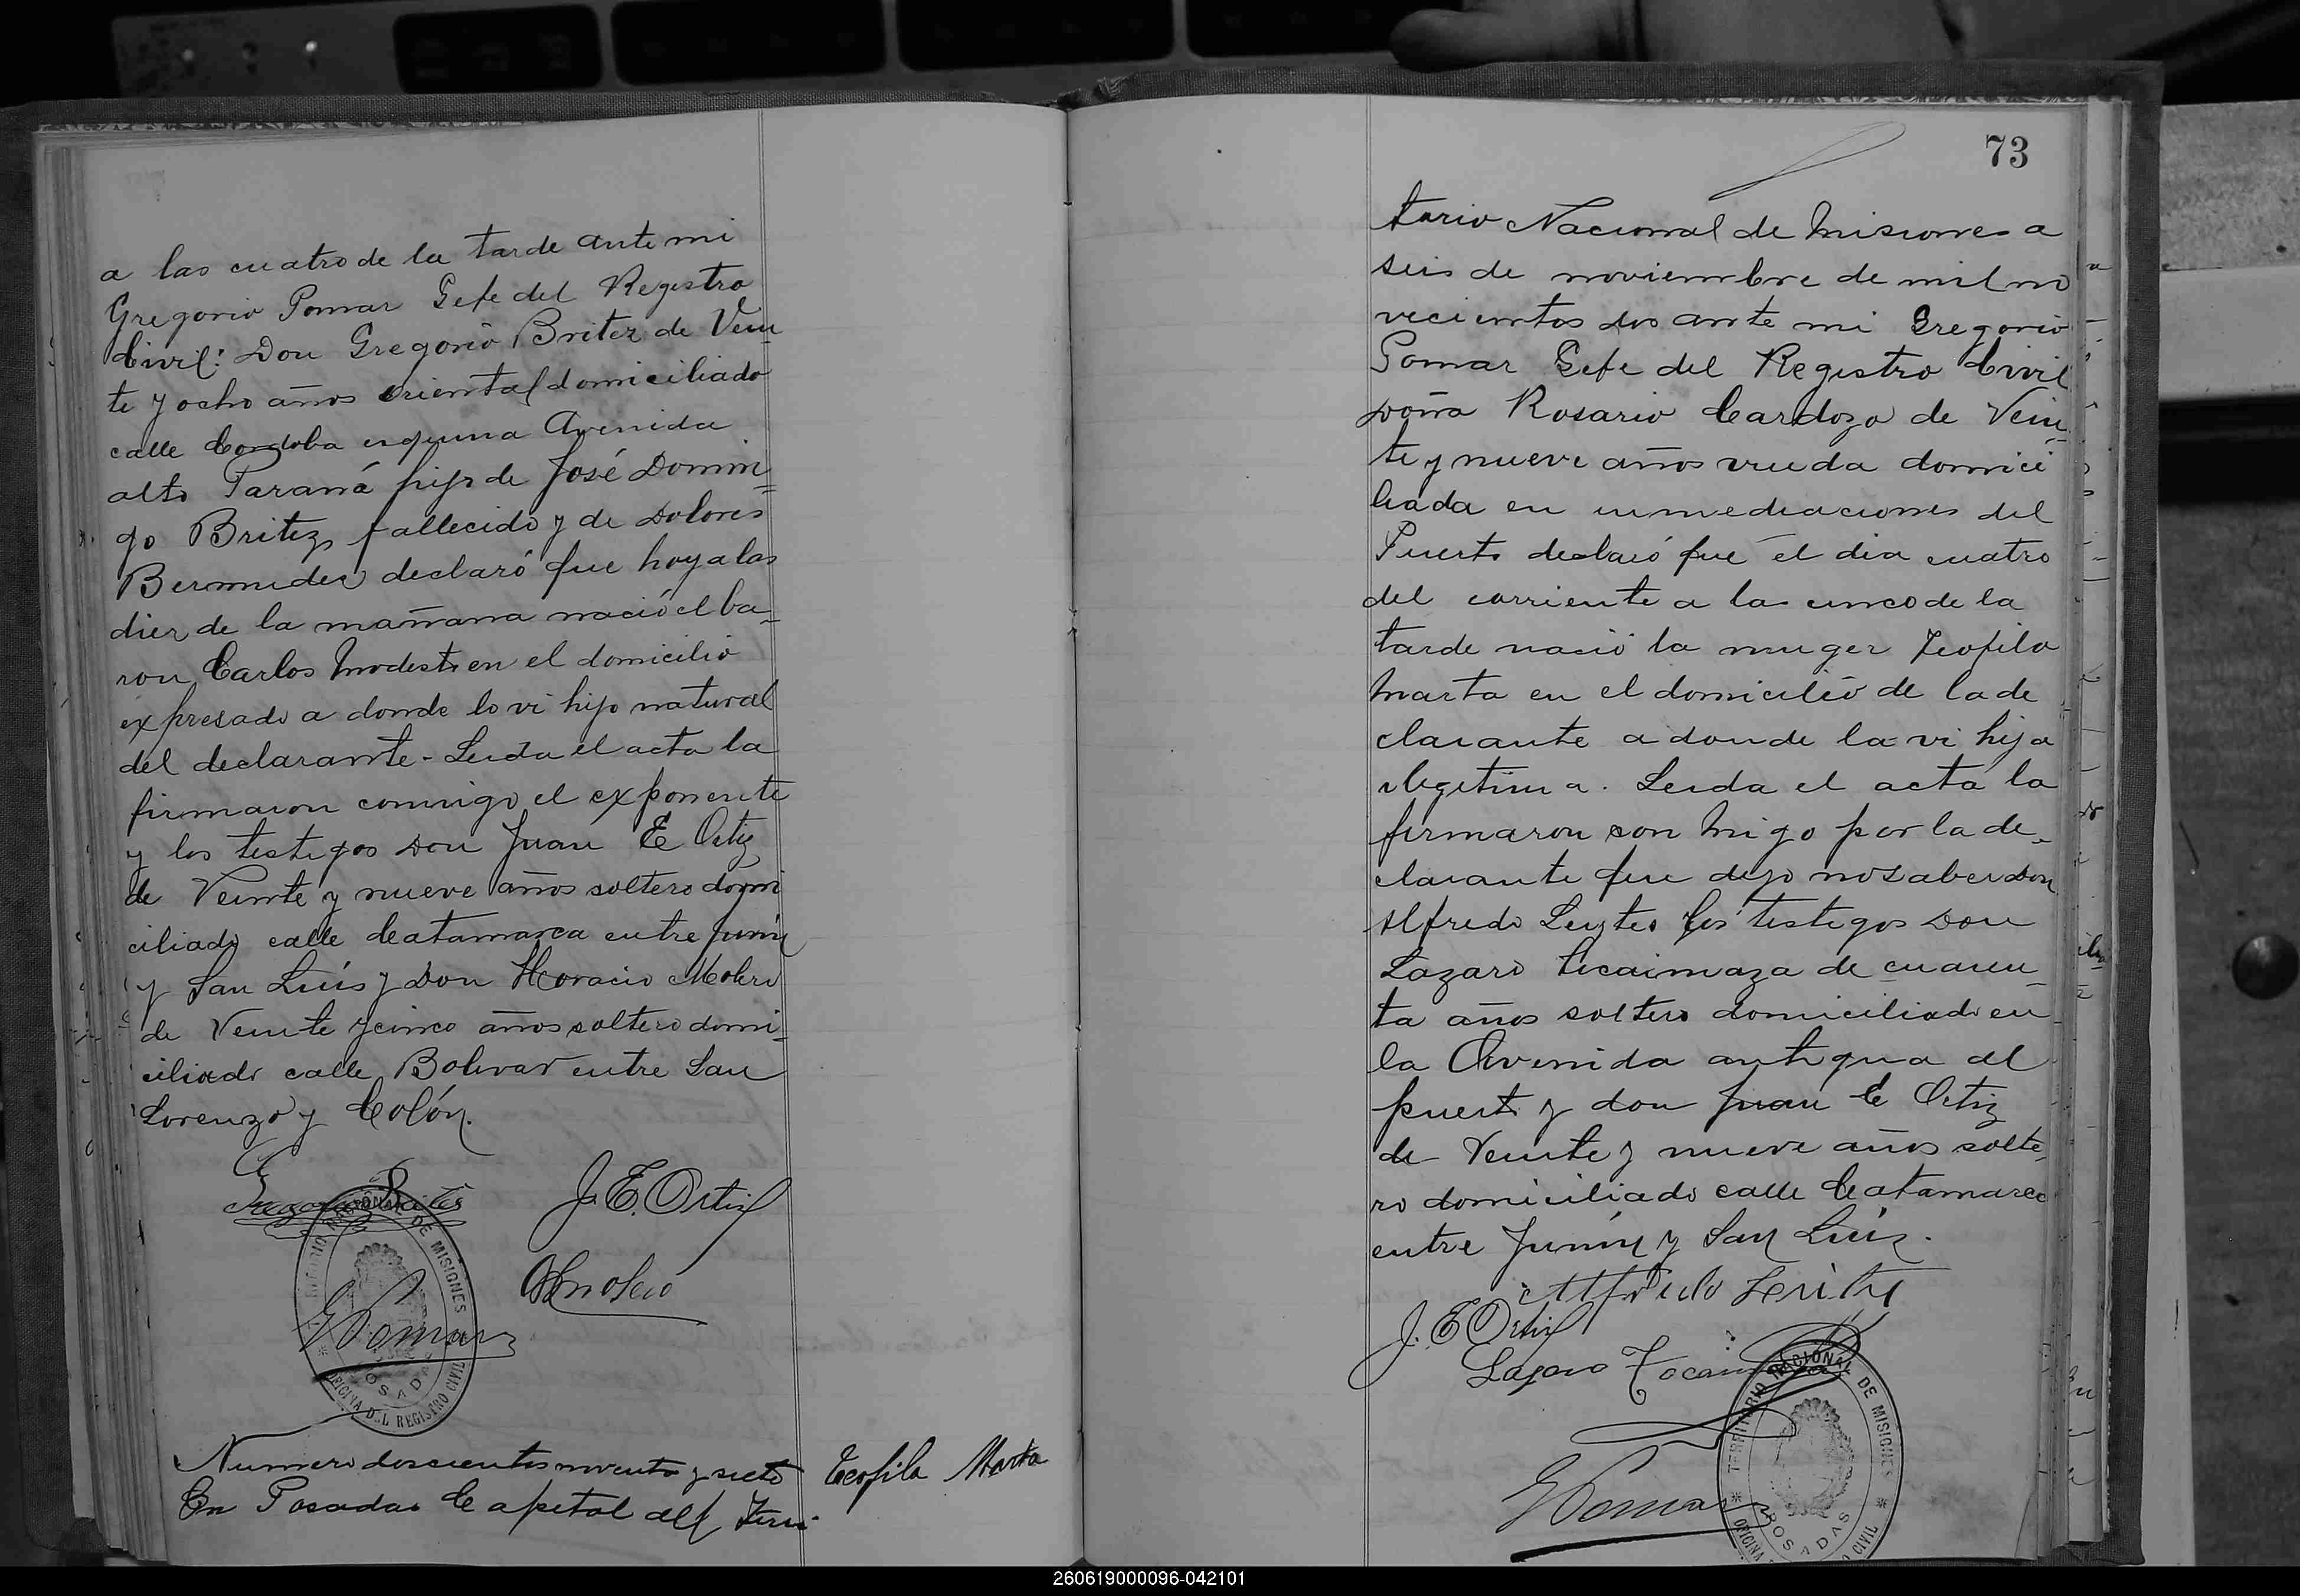 a las cuatro de la tarde ante mi
Gregorio Pomar Gefe del Registro
Civil: Don Gregorio Britez de Vein
te y ocho años oriental domiciliado
calle Cordoba esquina Avenida
alto Paraná hijo de José Domin=
go Britez fallecido y de Dolores
Bermudez declaró que hoy a las
diez de la mañana nació el ba=
ron Carlos Modesto en el domicilio
expresado a donde lo vi hijo natural
del declarante - Leida el acta la
firmaron conmigo el exponente
y los testigos Don Juan E Ortiz
de Veinte y nueve años soltero domi
ciliado calle Catamarca entre Junin
y San Luis y Don Horacio Molero
de Veinte y cinco años soltero domi=
ciliado calle Bolivar entre San
Lorenzo y Colón.
J. E. Ortiz
GPomar
TERRITORIO NACIONAL DE MISIONES
POSADAS
OFICINA DEL REGISTRO CIVIL
Numero doscientos noventa y siete
Teofila Marta
En Posadas Capital del Terri
73
torio Nacional de Misiones a
seis de noviembre de mil no
vecientos dos ante mi Gregorio
Pomar Gefe del Registro Civil
Doña Rosario Cardozo de Vein
te y nueve años viuda domici
liada en inmediaciones del
Puerto declaró que el dia cuatro
del corriente a las cinco de la
tarde nació la muger Teofila
Marta en el domicilio de la de
clarante a donde la vi hija
ilegitima. Leida el acta la
firmaron con migo por la de=
clarante que dijo no saber Don
Alfredo los testigos Don
Lazaro de cuaren=
ta años soltero domiciliado en
la Avenida antigua al
puerto y don Juan E Ortiz
de Veinte y nueve años solte
ro domiciliado calle Catamarca
entre Junin y San Luis.
Alfredo
J. E Ortiz
Lazaro
GPomar
TERRITORIO NACIONAL DE MISIONES
POSADAS
OFICINA CIVIL
260619000096-042101